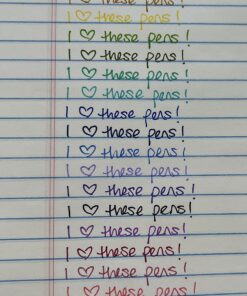 I ♡ these pens!
I ♡ these pens!
I ♡ these pens!
I ♡ these pens!
I ♡ these pens!
I ♡ these pens!
I ♡ these pens!
I ♡ these pens!
I ♡ these pens!
I ♡ these pens!
I ♡ these pens!
I ♡ these pens!
I ♡ these pens!
I ♡ these pens!
I ♡ these pens!
I ♡ these pens!